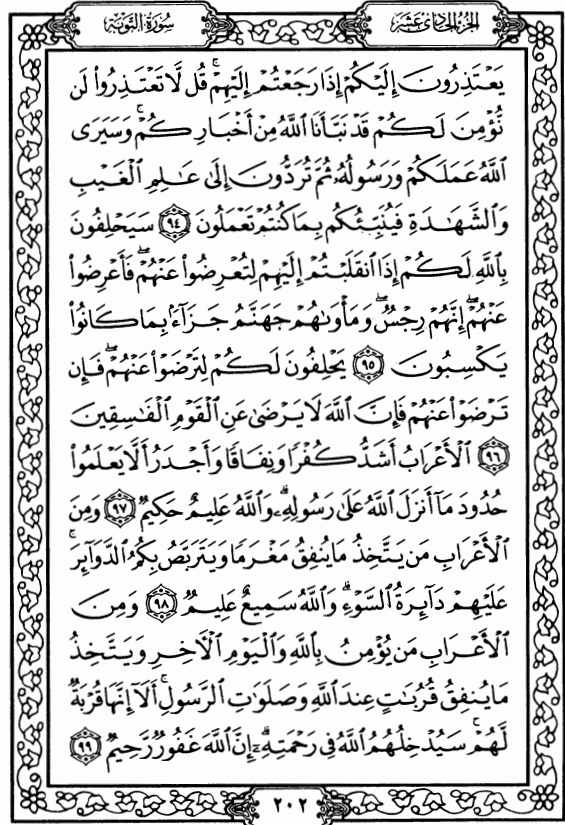 سُورَةُ التَّوْبَةِ
الجُزْءُ الحَادِي عَشَرَ
يَعْتَذِرُونَ إِلَيْكُمْ إِذَا رَجَعْتُمْ إِلَيْهِمْ ۚ قُل لَّا تَعْتَذِرُوا۟ لَن
نُّؤْمِنَ لَكُمْ قَدْ نَبَّأَنَا ٱللَّهُ مِنْ أَخْبَارِكُمْ ۚ وَسَيَرَى
ٱللَّهُ عَمَلَكُمْ وَرَسُولُهُۥ ثُمَّ تُرَدُّونَ إِلَىٰ عَٰلِمِ ٱلْغَيْبِ
وَٱلشَّهَٰدَةِ فَيُنَبِّئُكُم بِمَا كُنتُمْ تَعْمَلُونَ ٩٤ سَيَحْلِفُونَ
بِٱللَّهِ لَكُمْ إِذَا ٱنقَلَبْتُمْ إِلَيْهِمْ لِتُعْرِضُوا۟ عَنْهُمْ ۖ فَأَعْرِضُوا۟
عَنْهُمْ ۖ إِنَّهُمْ رِجْسٌ ۖ وَمَأْوَىٰهُمْ جَهَنَّمُ جَزَآءًۢ بِمَا كَانُوا۟
يَكْسِبُونَ ٩٥ يَحْلِفُونَ لَكُمْ لِتَرْضَوْا۟ عَنْهُمْ ۖ فَإِن
تَرْضَوْا۟ عَنْهُمْ فَإِنَّ ٱللَّهَ لَا يَرْضَىٰ عَنِ ٱلْقَوْمِ ٱلْفَٰسِقِينَ
٩٦ ٱلْأَعْرَابُ أَشَدُّ كُفْرًا وَنِفَاقًا وَأَجْدَرُ أَلَّا يَعْلَمُوا۟
حُدُودَ مَآ أَنزَلَ ٱللَّهُ عَلَىٰ رَسُولِهِۦ ۗ وَٱللَّهُ عَلِيمٌ حَكِيمٌ ٩٧ وَمِنَ
ٱلْأَعْرَابِ مَن يَتَّخِذُ مَا يُنفِقُ مَغْرَمًا وَيَتَرَبَّصُ بِكُمُ ٱلدَّوَآئِرَ ۚ
عَلَيْهِمْ دَآئِرَةُ ٱلسَّوْءِ ۗ وَٱللَّهُ سَمِيعٌ عَلِيمٌ ٩٨ وَمِنَ
ٱلْأَعْرَابِ مَن يُؤْمِنُ بِٱللَّهِ وَٱلْيَوْمِ ٱلْءَاخِرِ وَيَتَّخِذُ
مَا يُنفِقُ قُرُبَٰتٍ عِندَ ٱللَّهِ وَصَلَوَٰتِ ٱلرَّسُولِ ۚ أَلَآ إِنَّهَا قُرْبَةٌ
لَّهُمْ ۚ سَيُدْخِلُهُمُ ٱللَّهُ فِى رَحْمَتِهِۦٓ ۗ إِنَّ ٱللَّهَ غَفُورٌ رَّحِيمٌ ٩٩
٢٠٢